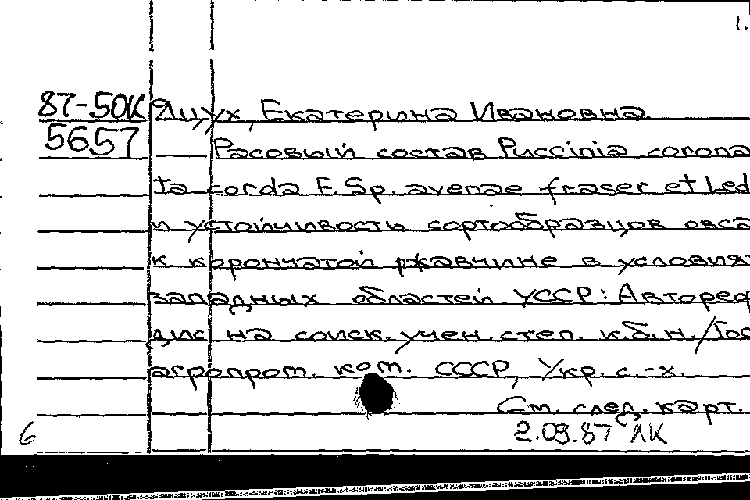 1.
87-50К Яцух, Екатерина Ивановна
5657 Расовый состав Puccinia corona
ta corda F. Sp. avenae fraser et Led
и устойчивость сортообразцов овса
к корончатой ржавчине в условиях
западных областей УССР: Автореф
дис на соиск. учен степ. к.б.н. / Гос
агропром. ком. СССР, Укр. с.-х.
См. след. карт.
6 2.09.87 ЛК